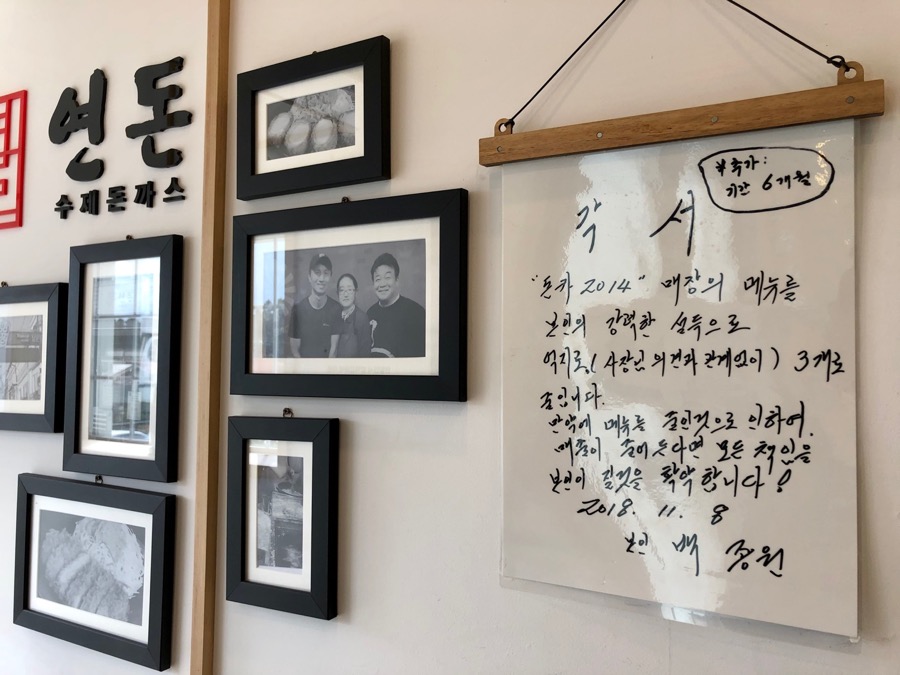 연돈
수제돈까스
※추가:
기간 6개월
각 서
"돈카 2014" 매장의 메뉴를
본인의 강력한 설득으로
억지로(사장님 의견과 관계없이) 3개로
줄입니다.
만약에 메뉴를 줄인것으로 인하여
매출이 줄어든다면 모든 책임을
본인이 질것을 확약합니다!
2018. 11. 8
본인 백 종원